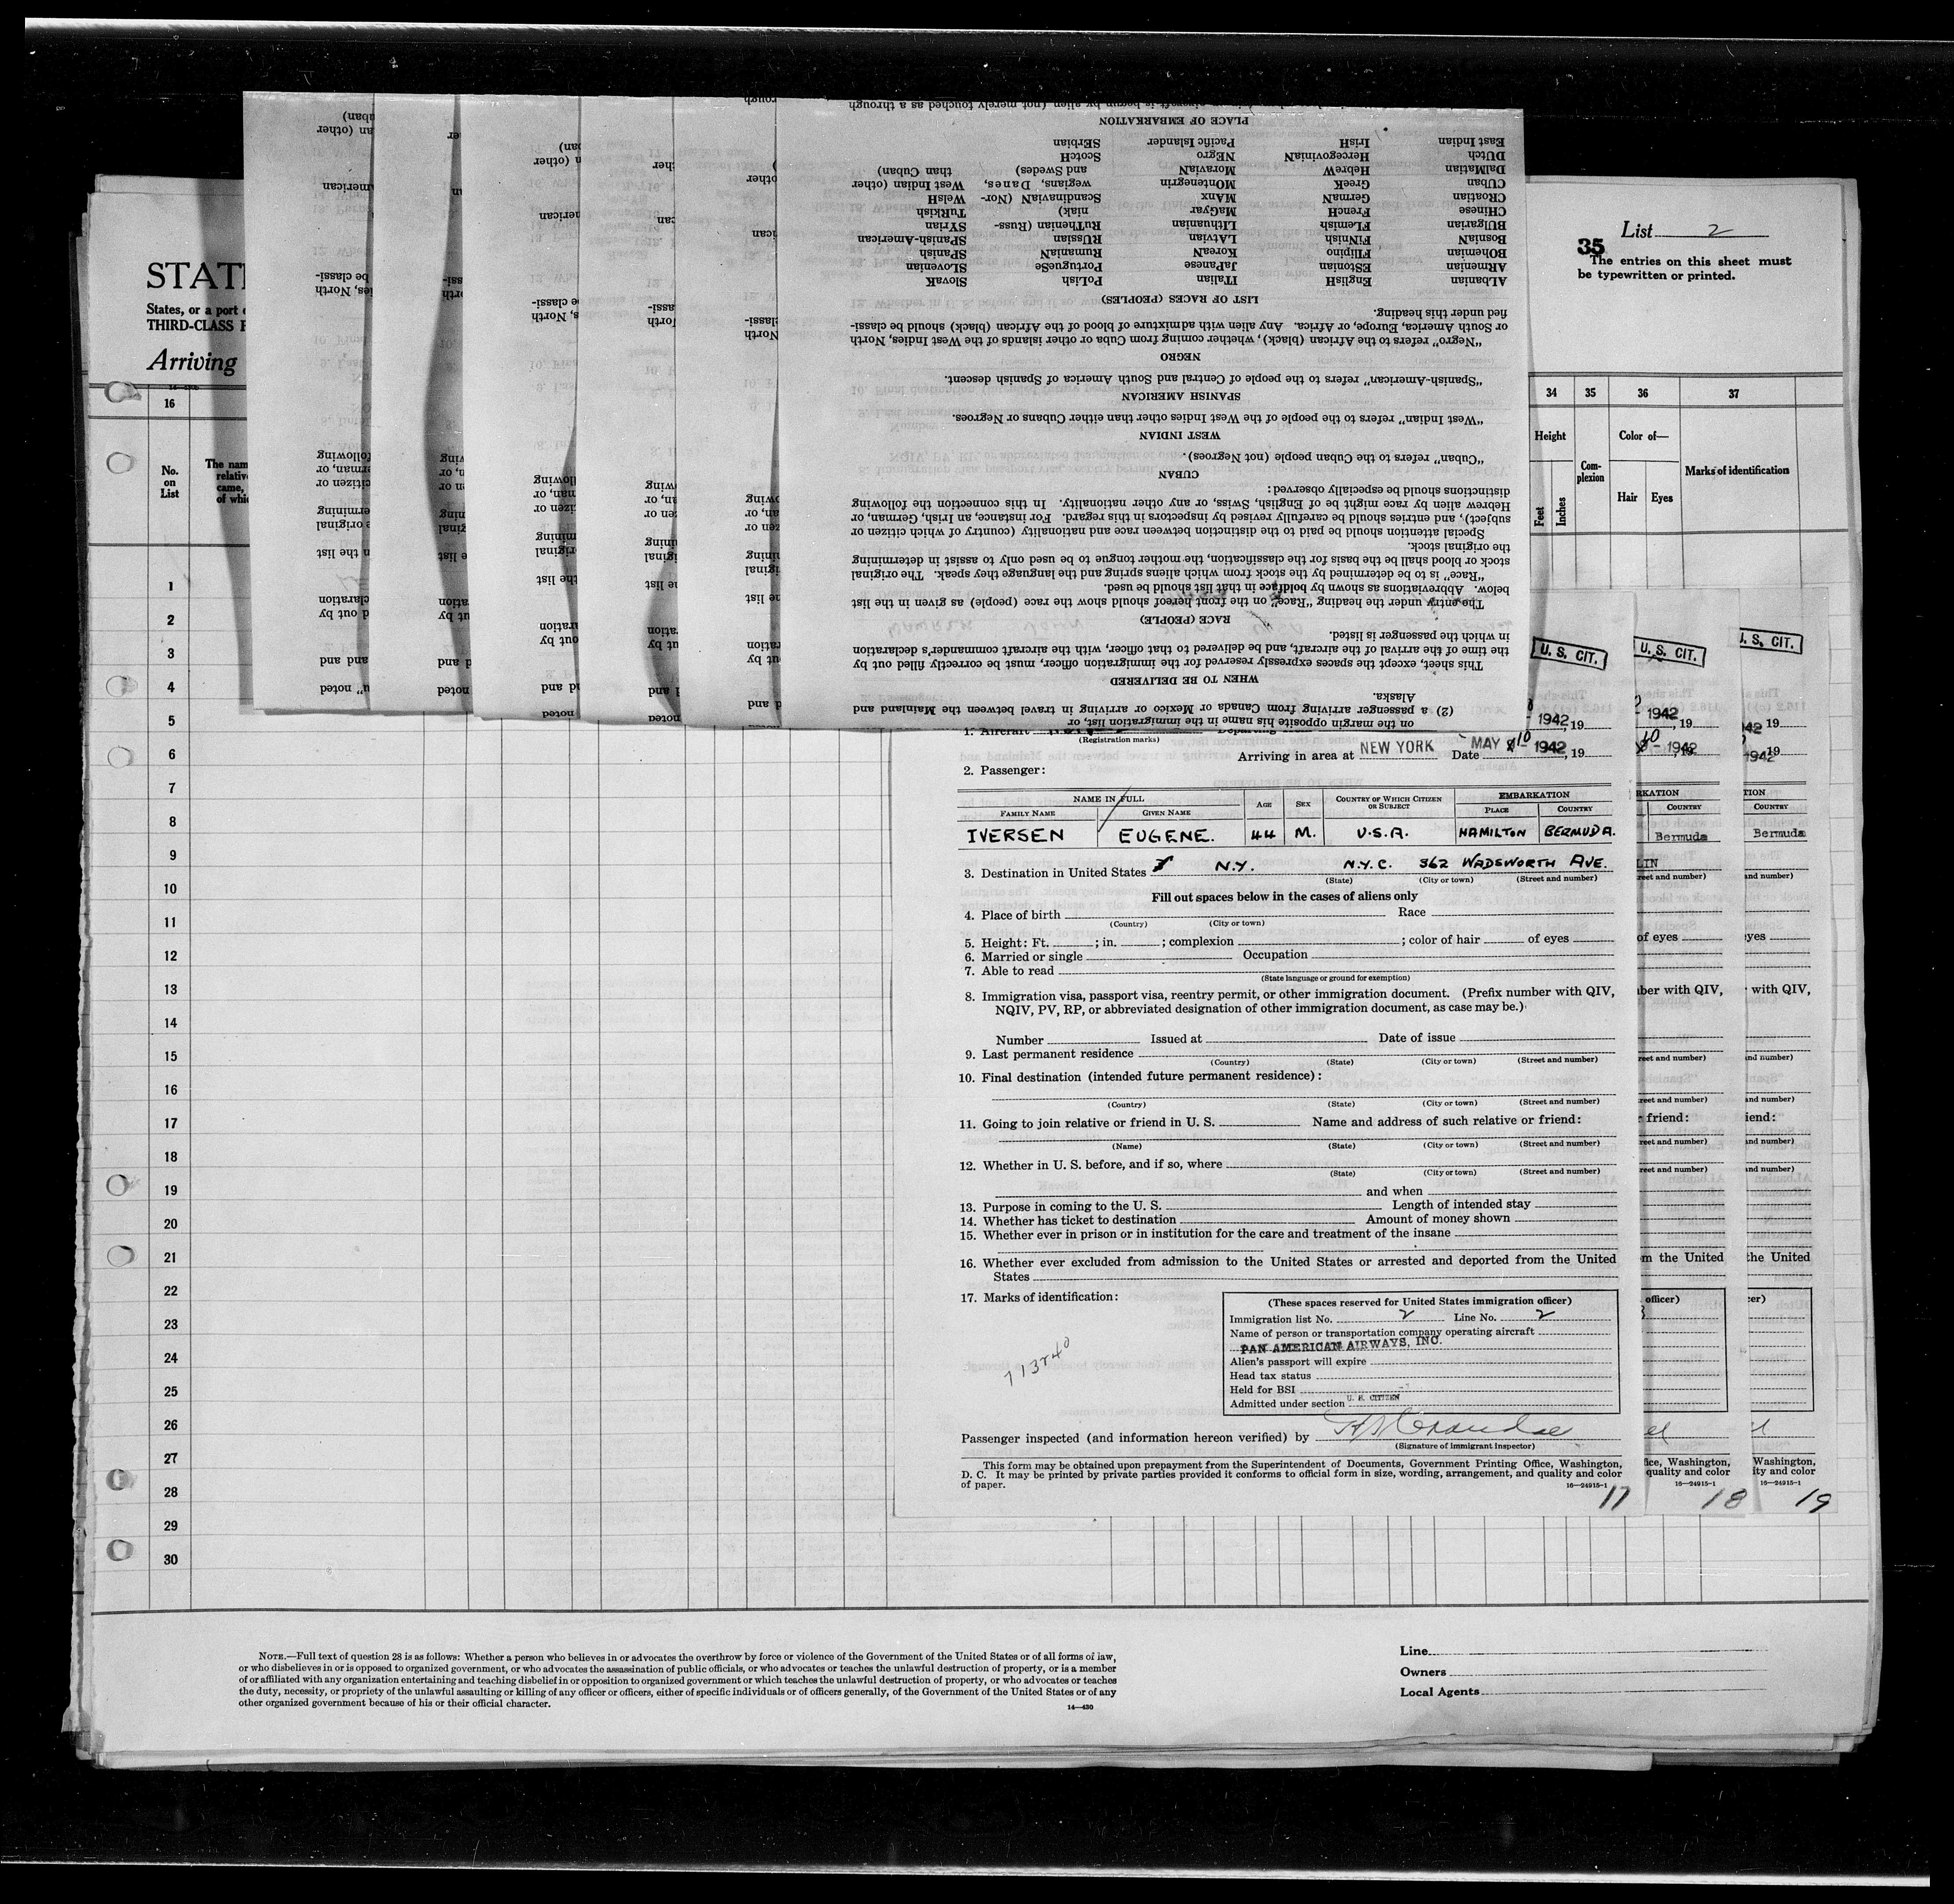 List 2
35
The entries on this sheet must
be typewritten or printed.
STAT
States, or a port
THIRD-CLASS
Arriving
16
34 35 36 37
No.
on
List
The nam
relativ
came,
of whi
Height
Feet
Inches
Com-
plexion
Color of—
Hair Eyes
Marks of identification
1
2
3
4
5
6
7
8
9
10
11
12
13
14
15
16
17
18
19
20
21
22
23
24
25
26
27
28
29
30
on the margin opposite his name in the immigration list, or
(2) a passenger arriving from Canada or Mexico or arriving in travel between the Mainland and
Alaska.
WHEN TO BE DELIVERED
This sheet, except the spaces expressly reserved for the immigration officer, must be correctly filled out by
the time of the arrival of the aircraft, and be delivered to that officer, with the aircraft commander's declaration
in which the passenger is listed.
RACE (PEOPLE)
The entry under the heading "Race" on the front hereof should show the race (people) as given in the list
below. Abbreviations as shown by boldface in that list should be used.
"Race" is to be determined by the stock from which aliens spring and the language they speak. The original
stock or blood shall be the basis for the classification, the mother tongue to be used only to assist in determining
the original stock.
Special attention should be paid to the distinction between race and nationality (country of which citizen or
subject), and entries should be carefully revised by inspectors in this regard. For instance, an Irish, German, or
Hebrew alien by race might be of English, Swiss, or any other nationality. In this connection the following
distinctions should be especially observed:
CUBAN
"Cuban" refers to the Cuban people (not Negroes).
WEST INDIAN
"West Indian" refers to the people of the West Indies other than either Cubans or Negroes.
SPANISH AMERICAN
"Spanish-American" refers to the people of Central and South America of Spanish descent.
NEGRO
"Negro" refers to the African (black), whether coming from Cuba or other islands of the West Indies, North
or South America, Europe, or Africa. Any alien with admixture of blood of the African (black) should be classi-
fied under this heading.
LIST OF RACES (PEOPLES)
AlBanian EnglisH ITalian PoLish SlovaK
ARmenian EStonian JaPanese PortugueSe SlOvenian
BOhemian FIlipino KoreaN RumaniaN SPanish
BosniaN FiNnish LAtvian RUssian SPanish-American
BUlgarian FLemish LIthuanian RuThenian (Russ- SYrian
CHinese FrencH MaGyar niak) TuRkish
CRoatian GermaN MAnx ScandinaviaN (Nor- WelsH
CUban GreeK MOntenegrin wegians, Danes, West Indian (other
DalMatian HebreW MoraviaN and Swedes) than Cuban)
DUtch HercegoviniaN NEgro ScotcH
East Indian IrisH Pacific Islander SErbian
PLACE OF EMBARKATION
U. S. CIT.
U. S. CIT.
U. S. CIT.
1. Aircraft
(Registration marks)
1942, 19
Arriving in area at NEW YORK Date MAY 10 1942, 19
2. Passenger:
NAME IN FULL AGE SEX COUNTRY OF WHICH CITIZEN OR SUBJECT EMBARKATION
FAMILY NAME GIVEN NAME PLACE COUNTRY
IVERSEN EUGENE. 44 M. U.S.A. HAMILTON BERMUDA.
Bermuda
Bermuda
3. Destination in United States N.Y. N.Y.C. 362 WADSWORTH AVE.
(State) (City or town) (Street and number)
Fill out spaces below in the cases of aliens only
4. Place of birth Race
(Country) (City or town)
5. Height: Ft. ; in. ; complexion ; color of hair of eyes
6. Married or single Occupation
7. Able to read
(State language or ground for exemption)
8. Immigration visa, passport visa, reentry permit, or other immigration document. (Prefix number with QIV,
NQIV, PV, RP, or abbreviated designation of other immigration document, as case may be.)
Number Issued at Date of issue
9. Last permanent residence
(Country) (State) (City or town) (Street and number)
10. Final destination (intended future permanent residence):
(Country) (State) (City or town) (Street and number)
11. Going to join relative or friend in U. S. Name and address of such relative or friend:
(Name) (State) (City or town) (Street and number)
12. Whether in U. S. before, and if so, where
(State) (City or town) (Street and number)
and when
13. Purpose in coming to the U. S. Length of intended stay
14. Whether has ticket to destination Amount of money shown
15. Whether ever in prison or in institution for the care and treatment of the insane
16. Whether ever excluded from admission to the United States or arrested and deported from the United
States
17. Marks of identification:
(These spaces reserved for United States immigration officer)
Immigration list No. 2 Line No. 2
Name of person or transportation company operating aircraft
PAN AMERICAN AIRWAYS, INC.
Alien's passport will expire
Head tax status
Held for BSI
Admitted under section U. S. CITIZEN
Passenger inspected (and information hereon verified) by
(Signature of immigrant inspector)
This form may be obtained upon prepayment from the Superintendent of Documents, Government Printing Office, Washington,
D. C. It may be printed by private parties provided it conforms to official form in size, wording, arrangement, and quality and color
of paper.
16—24915-1
17
16—24915-1
18
16—24915-1
19
NOTE.—Full text of question 28 is as follows: Whether a person who believes in or advocates the overthrow by force or violence of the Government of the United States or of all forms of law,
or who disbelieves in or is opposed to organized government, or who advocates the assassination of public officials, or who advocates or teaches the unlawful destruction of property, or is a member
of or affiliated with any organization entertaining and teaching disbelief in or opposition to organized government or which teaches the unlawful destruction of property, or who advocates or teaches
the duty, necessity, or propriety of the unlawful assaulting or killing of any officer or officers, either of specific individuals or of officers generally, of the Government of the United States or of any
other organized government because of his or their official character.
14—430
Line
Owners
Local Agents